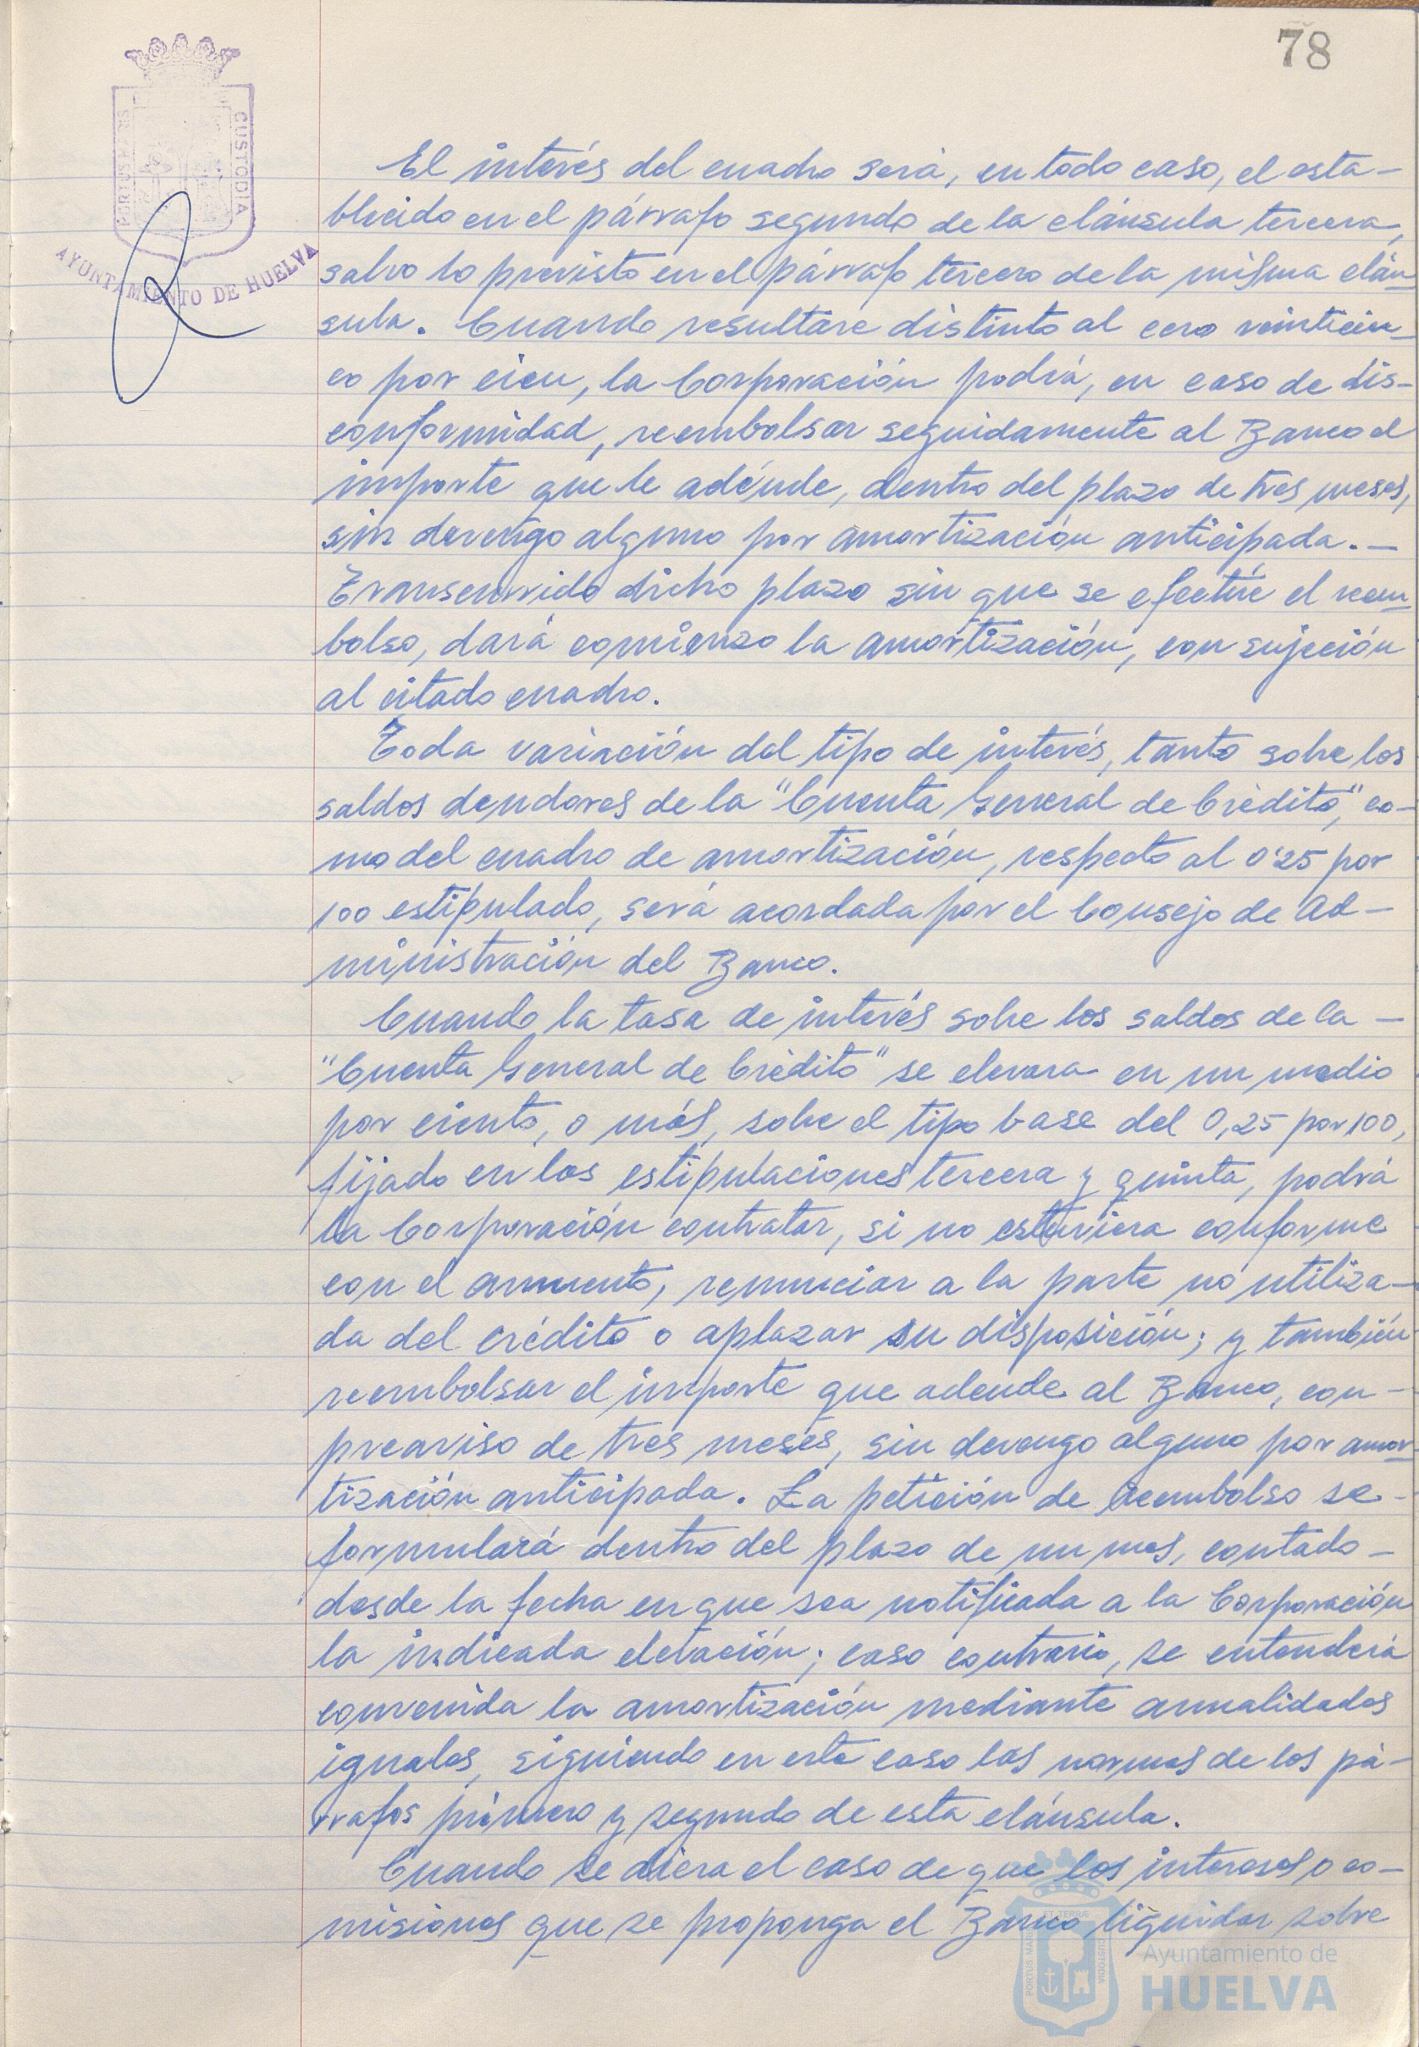 78
PORTUS MARIS
CUSTODIA
AYUNTAMIENTO DE HUELVA
El interés del cuadro será, en todo caso, el esta-
blecido en el párrafo segundo de la cláusula tercera,
salvo lo previsto en el párrafo tercero de la misma cláu-
sula. Cuando resultare distinto al cero veinticin-
co por cien, la Corporación podrá, en caso de dis-
conformidad, reembolsar seguidamente al Banco el
importe que le adéude, dentro del plazo de tres meses,
sin devengo alguno por amortización anticipada. -
Transcurrido dicho plazo sin que se efectúe el reem-
bolso, dará comienzo la amortización, con sujeción
al citado cuadro.
Toda variación del tipo de interés, tanto sobre los
saldos deudores de la "Cuenta General de Crédito", co-
mo del cuadro de amortización, respecto al 0'25 por
100 estipulado, será acordada por el Consejo de Ad-
ministración del Banco.
Cuando la tasa de interés sobre los saldos de la -
"Cuenta General de Crédito" se elevara en un medio
por ciento, o más, sobre el tipo base del 0,25 por 100,
fijado en las estipulaciones tercera y quinta, podrá
la Corporación contratar, si no estuviera conforme
con el aumento, renunciar a la parte no utiliza-
da del crédito o aplazar su disposición; y también
reembolsar el importe que adeude al Banco, con -
preaviso de tres meses, sin devengo alguno por amor-
tización anticipada. La petición de reembolso se -
formulará dentro del plazo de un mes, contado -
desde la fecha en que sea notificada a la Corporación
la indicada elevación; caso contrario, se entenderá
convenida la amortización mediante anualidades
iguales, siguiendo en este caso las normas de los pá-
rrafos primero y segundo de esta cláusula.
Cuando se diera el caso de que los intereses o co-
misiones que se proponga el Banco liquidar sobre
PORTUS MARIS
ET TERRAE
CUSTODIA
Ayuntamiento de
HUELVA